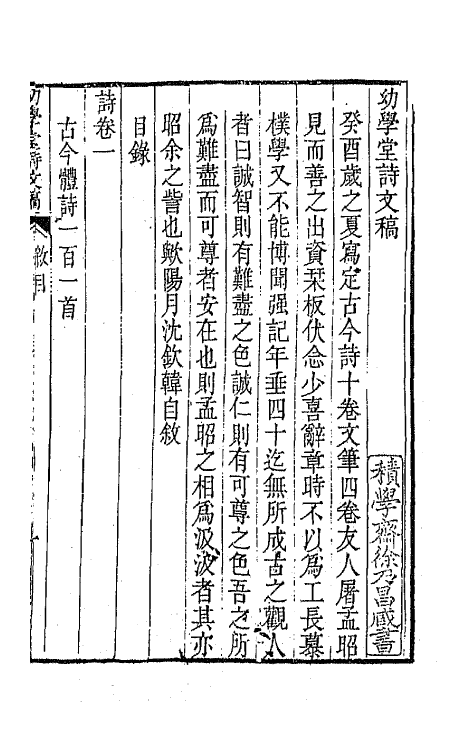 幼學堂詩文稿
積學齋徐乃昌藏書
癸酉歲之夏寫定古今詩十卷文筆四卷友人屠孟昭
見而善之出資栞板伏念少喜辭章時不以爲工長慕
樸學又不能博聞强記年垂四十迄無所成古之觀人
者曰誠智則有難盡之色誠仁則有可尊之色吾之所
爲難盡而可尊者安在也則孟昭之相爲汲汲者其亦
昭余之訾也歟陽月沈欽韓自敘
目錄
詩卷一
古今體詩一百一首
幼學堂詩文稿
敘目